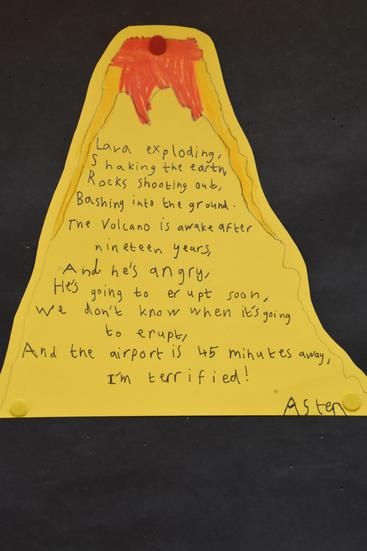 Lava exploding,
Shaking the earth,
Rocks shooting out,
Bashing into the ground.
The Volcano is awake after
nineteen years,
And he's angry,
He's going to erupt soon,
We don't know when it's going
to erupt,
And the airport is 45 minutes away,
I'm terrified!
Asten